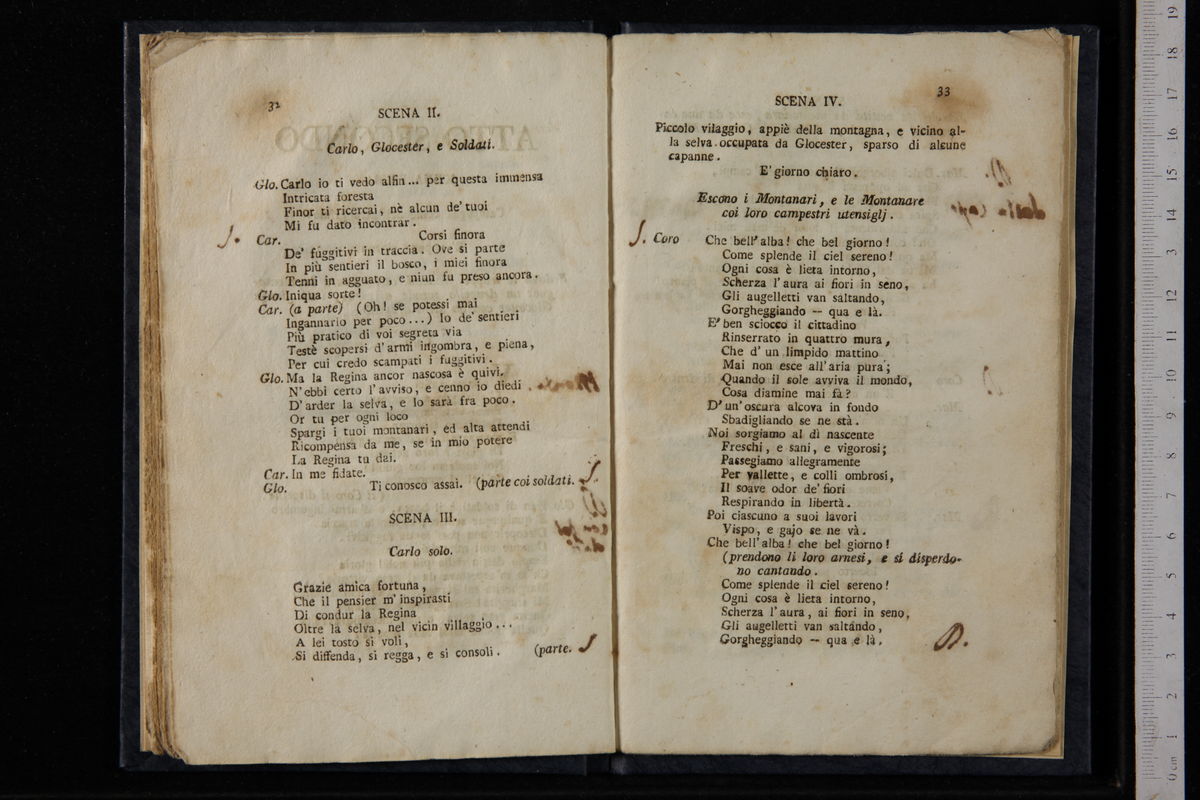 32
SCENA II.
Carlo, Glocester, e Soldati.
Glo. Carlo io ti vedo alfin... per questa immensa
Intricata foresta
Finor ti ricercai, nè alcun de' tuoi
Mi fu dato incontrar.
Car. Corsi finora
De' fuggitivi in traccia. Ove si parte
In più sentieri il bosco, i miei finora
Tenni in agguato, e niun fu preso ancora.
Glo. Iniqua sorte!
Car. (a parte) (Oh! se potessi mai
Ingannarlo per poco...) Io de' sentieri
Più pratico di voi segreta via
Testè scopersi d'armi ingombra, e piena,
Per cui credo scampati i fuggitivi.
Glo. Ma la Regina ancor nascosa è quivi.
N'ebbi certo l'avviso, e cenno io diedi
D'arder la selva, e lo sarà fra poco.
Or tu per ogni loco
Spargi i tuoi montanari, ed alta attendi
Ricompensa da me, se in mio potere
La Regina tu dai.
Car. In me fidate.
Glo. Ti conosco assai. (parte coi soldati.
SCENA III.
Carlo solo.
Grazie amica fortuna,
Che il pensier m'inspirasti
Di condur la Regina
Oltre la selva, nel vicin villaggio...
A lei tosto si voli,
Si diffenda, si regga, e si consoli. (parte.
33
SCENA IV.
Piccolo vilaggio, appiè della montagna, e vicino al-
la selva occupata da Glocester, sparso di alcune
capanne.
E' giorno chiaro.
Escono i Montanari, e le Montanare
coi loro campestri utensiglj.
Coro Che bell'alba! che bel giorno!
Come splende il ciel sereno!
Ogni cosa è lieta intorno,
Scherza l'aura ai fiori in seno,
Gli augelletti van saltando,
Gorgheggiando — qua e là.
E' ben sciocco il cittadino
Rinserrato in quattro mura,
Che d'un limpido mattino
Mai non esce all'aria pura;
Quando il sole avviva il mondo,
Cosa diamine mai fà?
D'un'oscura alcova in fondo
Sbadigliando se ne stà.
Noi sorgiamo al dì nascente
Freschi, e sani, e vigorosi;
Passegiamo allegramente
Per vallette, e colli ombrosi,
Il soave odor de' fiori
Respirando in libertà.
Poi ciascuno a suoi lavori
Vispo, e gajo se ne và.
Che bell'alba! che bel giorno!
(prendono li loro arnesi, e si disperdo-
no cantando.
Come splende il ciel sereno!
Ogni cosa è lieta intorno,
Scherza l'aura, ai fiori in seno,
Gli augelletti van saltando,
Gorgheggiando — qua e là.
0 cm 1 2 3 4 5 6 7 8 9 10 11 12 13 14 15 16 17 18 19